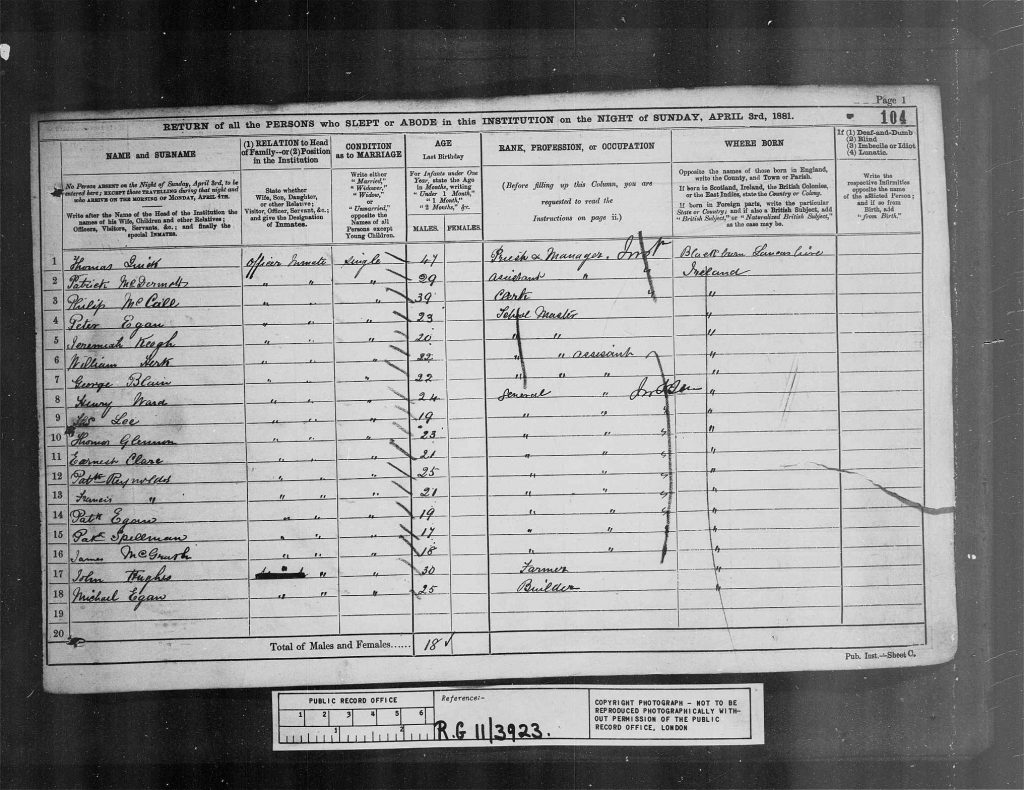 Page 1
104
RETURN of all the PERSONS who SLEPT or ABODE in this INSTITUTION on the NIGHT of SUNDAY, APRIL 3rd, 1881.
NAME and SURNAME
(1) RELATION to Head of Family—or (2) Position in the Institution
CONDITION as to MARRIAGE
AGE Last Birthday
RANK, PROFESSION, or OCCUPATION
WHERE BORN
If (1) Deaf-and-Dumb (2) Blind (3) Imbecile or Idiot (4) Lunatic.
No Person ABSENT on the Night of Sunday, April 3rd, to be entered here; EXCEPT those TRAVELLING during that night and who ARRIVE ON THE MORNING OF MONDAY, APRIL 4TH.
Write after the Name of the Head of the Institution the names of his Wife, Children and other Relatives; Officers, Visitors, Servants, &c.; and finally the special INMATES.
State whether Wife, Son, Daughter, or other Relative; Visitor, Officer, Servant, &c.; and give the Designation of Inmates.
Write either "Married," "Widower," "Widow," or "Unmarried," opposite the Names of all Persons except Young Children.
For Infants under One Year, state the Age in Months, writing "Under 1 Month," "1 Month," "2 Months," &c.
MALES. FEMALES.
(Before filling up this Column, you are requested to read the Instructions on page ii.)
Opposite the names of those born in England, write the County, and Town or Parish.
If born in Scotland, Ireland, the British Colonies, or the East Indies, state the Country or Colony.
If born in Foreign parts, write the particular State or Country; and if also a British Subject, add "British Subject," or "Naturalized British Subject," as the case may be.
Write the respective Infirmities opposite the name of the afflicted Person; and if so from Birth, add "from Birth."
1 Thomas Quick Officer Inmate Single 47 Priest & Manager. Blackburn Lancashire
2 Patrick McDermott " " " 29 assistant " Ireland
3 Philip McCall " " " 39 Clerk " "
4 Peter Egan " " " 23 School Master "
5 Jeremiah Keogh " " " 20 " " "
6 William " " " 22 " " assistant "
7 George Blain " " " 22 " " " "
8 Henry Ward " " " 24 General "
9 Lee " " " 19 " " " "
10 Thomas Glennon " " " 23 " " " "
11 Earnest Clare " " " 21 " " " "
12 Patk Reynolds " " " 25 " " " "
13 Francis " " " " 21 " " " "
14 Patk Egan " " " 19 " " " "
15 Patk Spellman " " " 17 " " " "
16 James McGrath " " " 18 " " " "
17 John Hughes " " " 30 Farmer "
18 Michael Egan " " " 25 Builder "
19
20
Total of Males and Females...... 18
Pub. Inst.—Sheet C.
PUBLIC RECORD OFFICE
1 2 3 4 5 6
1 2
Reference:-
R.G 11/3923.
COPYRIGHT PHOTOGRAPH - NOT TO BE
REPRODUCED PHOTOGRAPHICALLY WITH-
OUT PERMISSION OF THE PUBLIC
RECORD OFFICE, LONDON